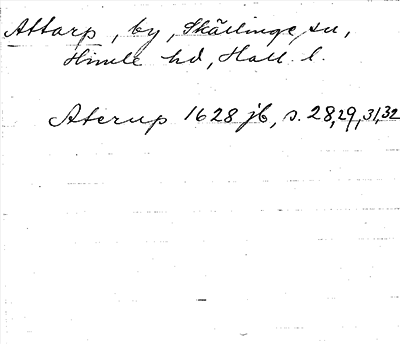 Attarp, by, Skällinge, sn,
Himle hd, Hall. l.
Aterup 1628 jb, s. 28,29,31,32